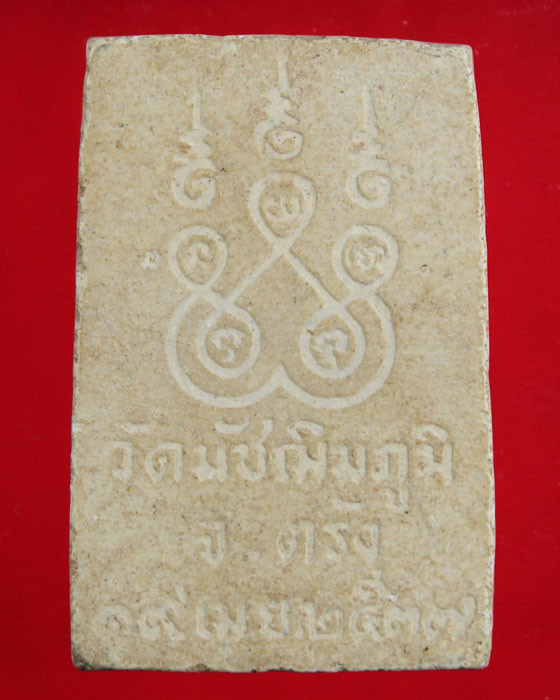 วัดมัชฌิมภูมิ
จ. ตรัง
๑๙ เม.ย. ๒๕๓๗